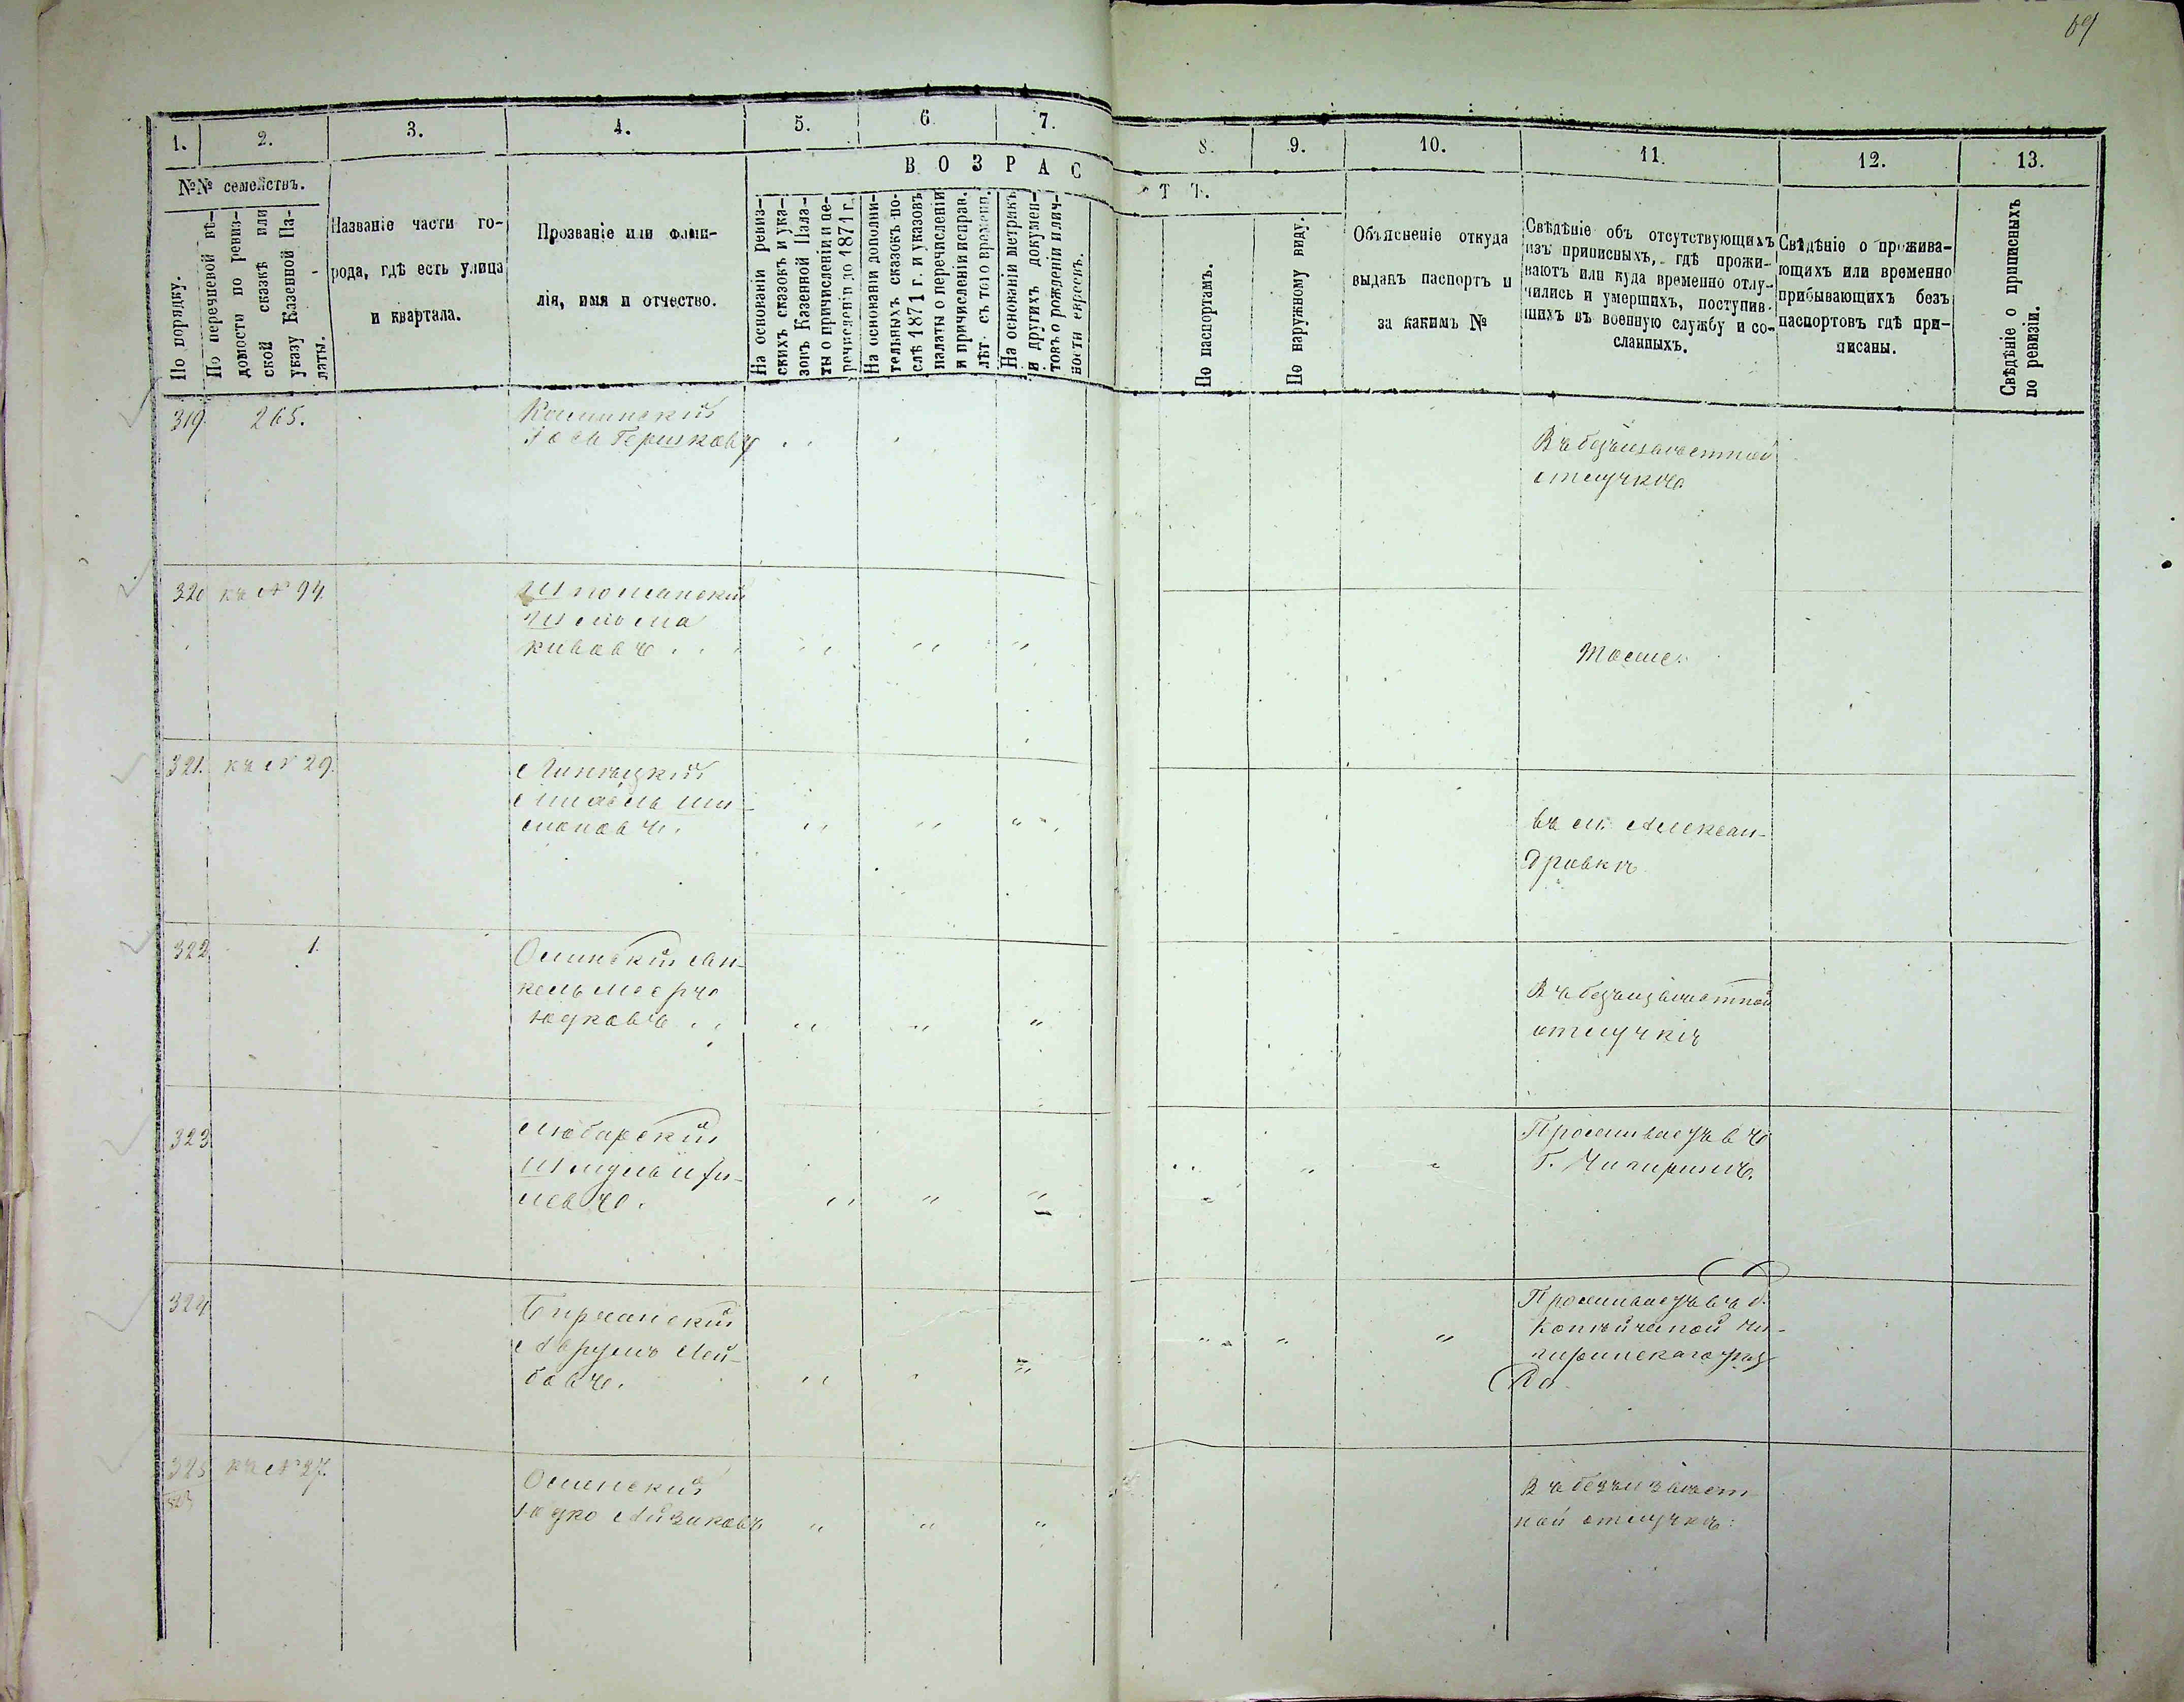 69
1.
2.
3.
4.
5.
6.
7.
8.
9.
10.
11.
12.
13.
№№ семействъ.
В О З Р А С
Т Ъ.
По порядку.
По перечневой вѣ-
домости по ревиз-
ской сказкѣ или
указу Казенной Па-
латы.
Названіе части го-
рода, гдѣ есть улица
и квартала.
Прозваніе или фами-
лія, имя и отчество.
На основаніи ревиз-
скихъ сказокъ и ука-
зовъ Казенной Пала-
ты о причисленіи и пе-
речисленіи до 1871 г.
На основаніи дополни-
тельныхъ сказокъ по-
слѣ 1871 г. и указовъ
палаты о перечисленіи
и причисленіи исправ.
лѣт. съ того времени.
На основаніи метрикъ
и другихъ докумен-
товъ о рожденіи и лич-
ности евреевъ.
По паспортамъ.
По наружному виду.
Объясненіе откуда
выданъ паспортъ и
за какимъ №
Свѣдѣніе объ отсутствующихъ
изъ приписныхъ, гдѣ прожи-
ваютъ или куда временно отлу-
чились и умершихъ, поступив-
шихъ въ военную службу и со-
сланныхъ.
Свѣдѣніе о прожива-
ющихъ или временно
прибывающихъ безъ
паспортовъ гдѣ при-
писаны.
Свѣдѣніе о приписныхъ
по ревизіи.
319. 265.
Каминскій
Іось Гершковъ
Въ безъизвѣстной
отлучкѣ
320 къ № 94.
Шполанскій
Шлёма
Кивовъ
Тоже.
321. къ № 29.
Липецкій
Шимонъ
въ м. Алексан-
дровкѣ
322 1.
Олинскій Ян-
кель Мееръ
Юдковъ
Въ безъизвѣстной
отлучкѣ
323
Любарскій
Шмуль Ици-
левъ.
Проживаетъ въ
Г. Чигиринѣ.
324
Бирганскій
Аврумъ Лей-
бовъ.
Проживаетъ въ д.
Копѣйчаной Чи-
гиринскаго уѣз-
да
325 къ № 27.
Ошенскій
Юдко Айзиковъ
Въ безъизвѣст
ной отлучкѣ: